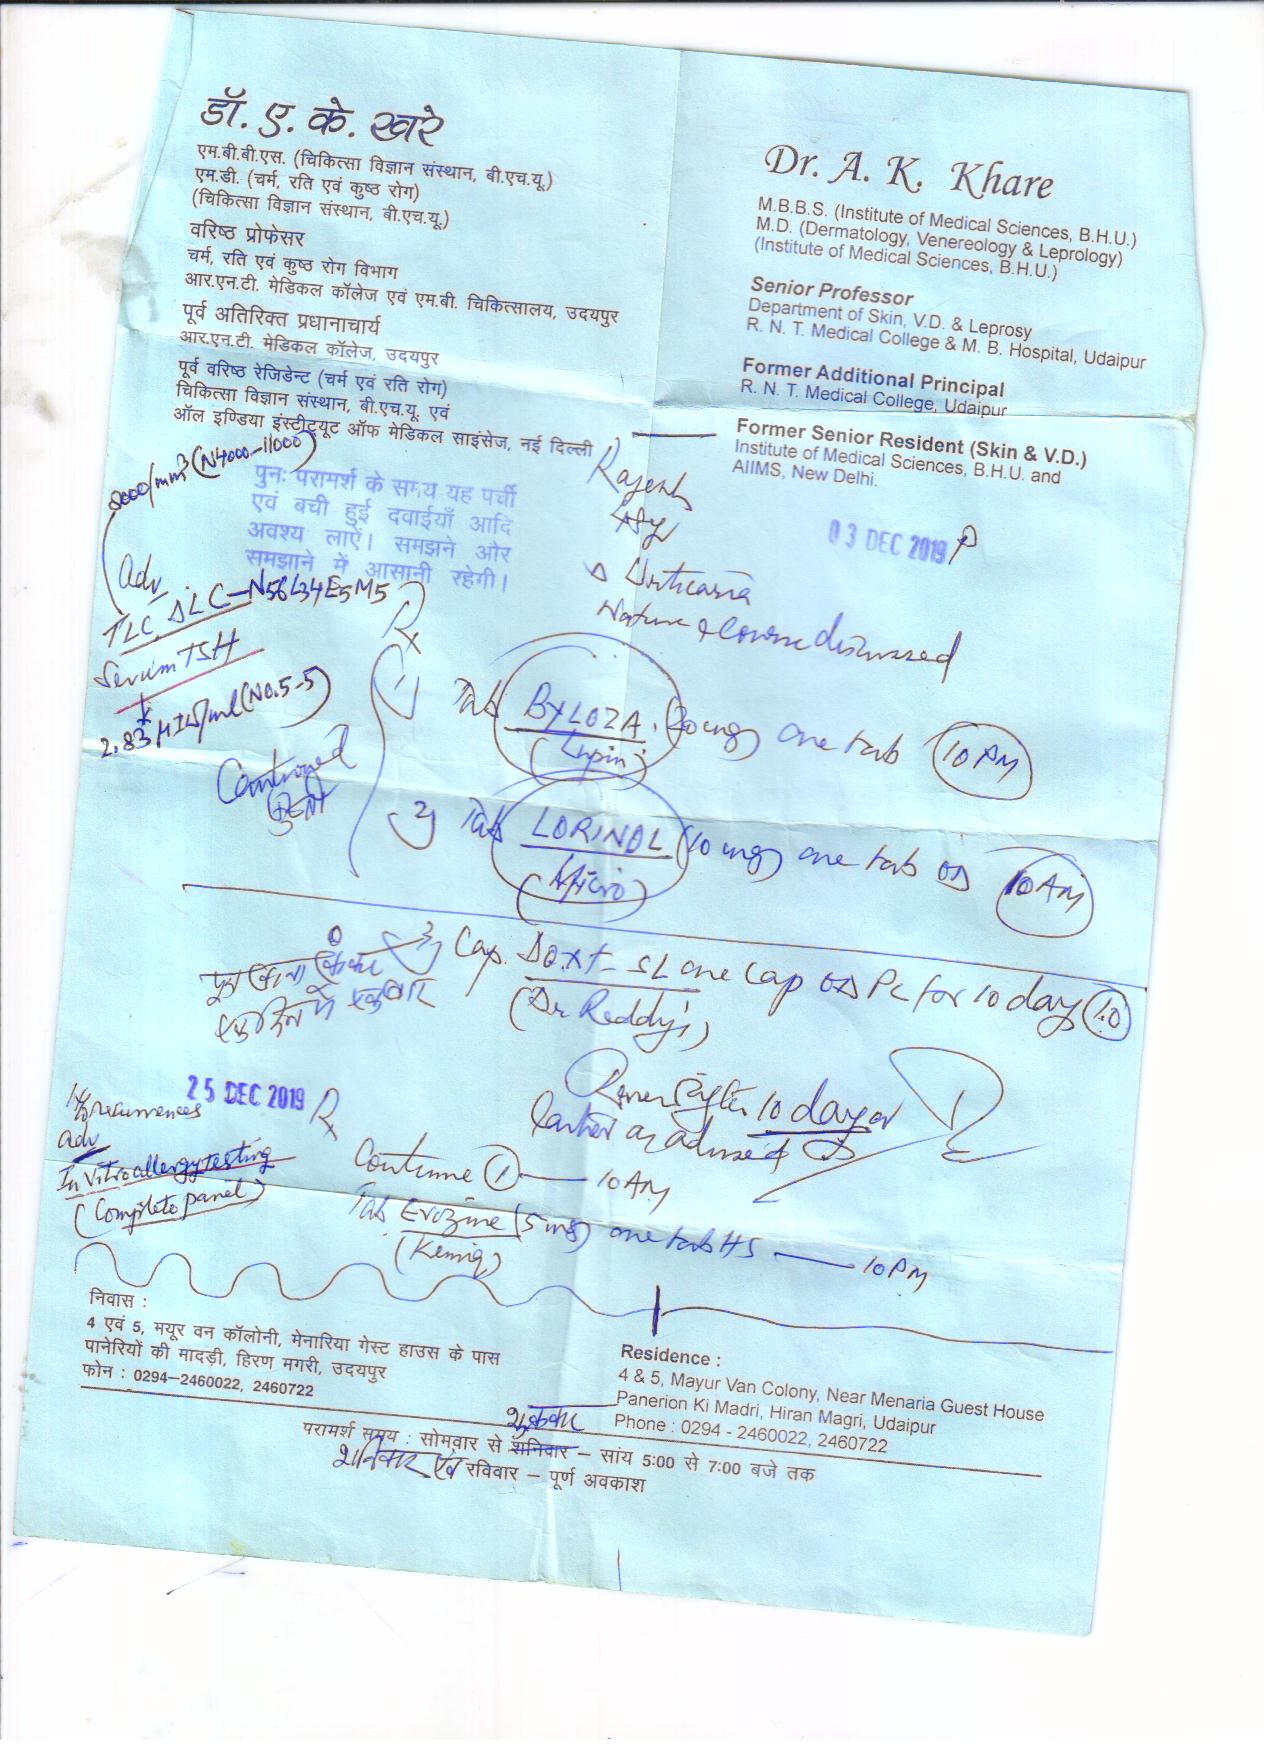 डॉ. ए. के. खरे
एम.बी.बी.एस. (चिकित्सा विज्ञान संस्थान, बी.एच.यू.)
एम.डी. (चर्म, रति एवं कुष्ठ रोग)
(चिकित्सा विज्ञान संस्थान, बी.एच.यू.)
वरिष्ठ प्रोफेसर
चर्म, रति एवं कुष्ठ रोग विभाग
आर.एन.टी. मेडिकल कॉलेज एवं एम.बी. चिकित्सालय, उदयपुर
पूर्व अतिरिक्त प्रधानाचार्य
आर.एन.टी. मेडिकल कॉलेज, उदयपुर
पूर्व वरिष्ठ रेजिडेन्ट (चर्म एवं रति रोग)
चिकित्सा विज्ञान संस्थान, बी.एच.यू. एवं
ऑल इण्डिया इंस्टीट्यूट ऑफ मेडिकल साइंसेज, नई दिल्ली
Dr. A. K. Khare
M.B.B.S. (Institute of Medical Sciences, B.H.U.)
M.D. (Dermatology, Venereology & Leprology)
(Institute of Medical Sciences, B.H.U.)
Senior Professor
Department of Skin, V.D. & Leprosy
R. N. T. Medical College & M. B. Hospital, Udaipur
Former Additional Principal
R. N. T. Medical College, Udaipur
Former Senior Resident (Skin & V.D.)
Institute of Medical Sciences, B.H.U. and
AIIMS, New Delhi.
8000/mm³ (N4000-11000)
पुनः परामर्श के समय यह पर्ची
एवं बची हुई दवाईयाँ आदि
अवश्य लाऐं। समझने और
समझाने में आसानी रहेगी।
Rajesh
03 DEC 2019
Adv
TLC, DLC-N56L34E5M5
Serum TSH
2.83 µIU/ml (N0.5-5)
Δ Urticaria
Nature & Course discussed
Rx
1) Tab BYLOZA (20mg) one tab 10 PM
(Lupin)
2) Tab LORINOL (10mg) one tab OD 10 AM
(Micro)
Continued
3) Cap. Doxt-SL one cap OD PC for 10 day (10)
(Dr Reddy's)
एक दिन में एकबार
Review after 10 day or
earlier as advised
25 DEC 2019 Rx
H/o recurrences
Adv
In Vitro allergy testing
(Complete panel)
Continue 1 — 10 AM
Tab Evozine (5mg) one tab HS — 10 PM
निवास :
4 एवं 5, मयूर वन कॉलोनी, मेनारिया गेस्ट हाउस के पास
पानेरियों की मादड़ी, हिरण मगरी, उदयपुर
फोन : 0294-2460022, 2460722
Residence :
4 & 5, Mayur Van Colony, Near Menaria Guest House
Panerion Ki Madri, Hiran Magri, Udaipur
Phone : 0294 - 2460022, 2460722
शुक्रवार
परामर्श समय : सोमवार से शनिवार – सांय 5:00 से 7:00 बजे तक
शनिवार एवं रविवार – पूर्ण अवकाश